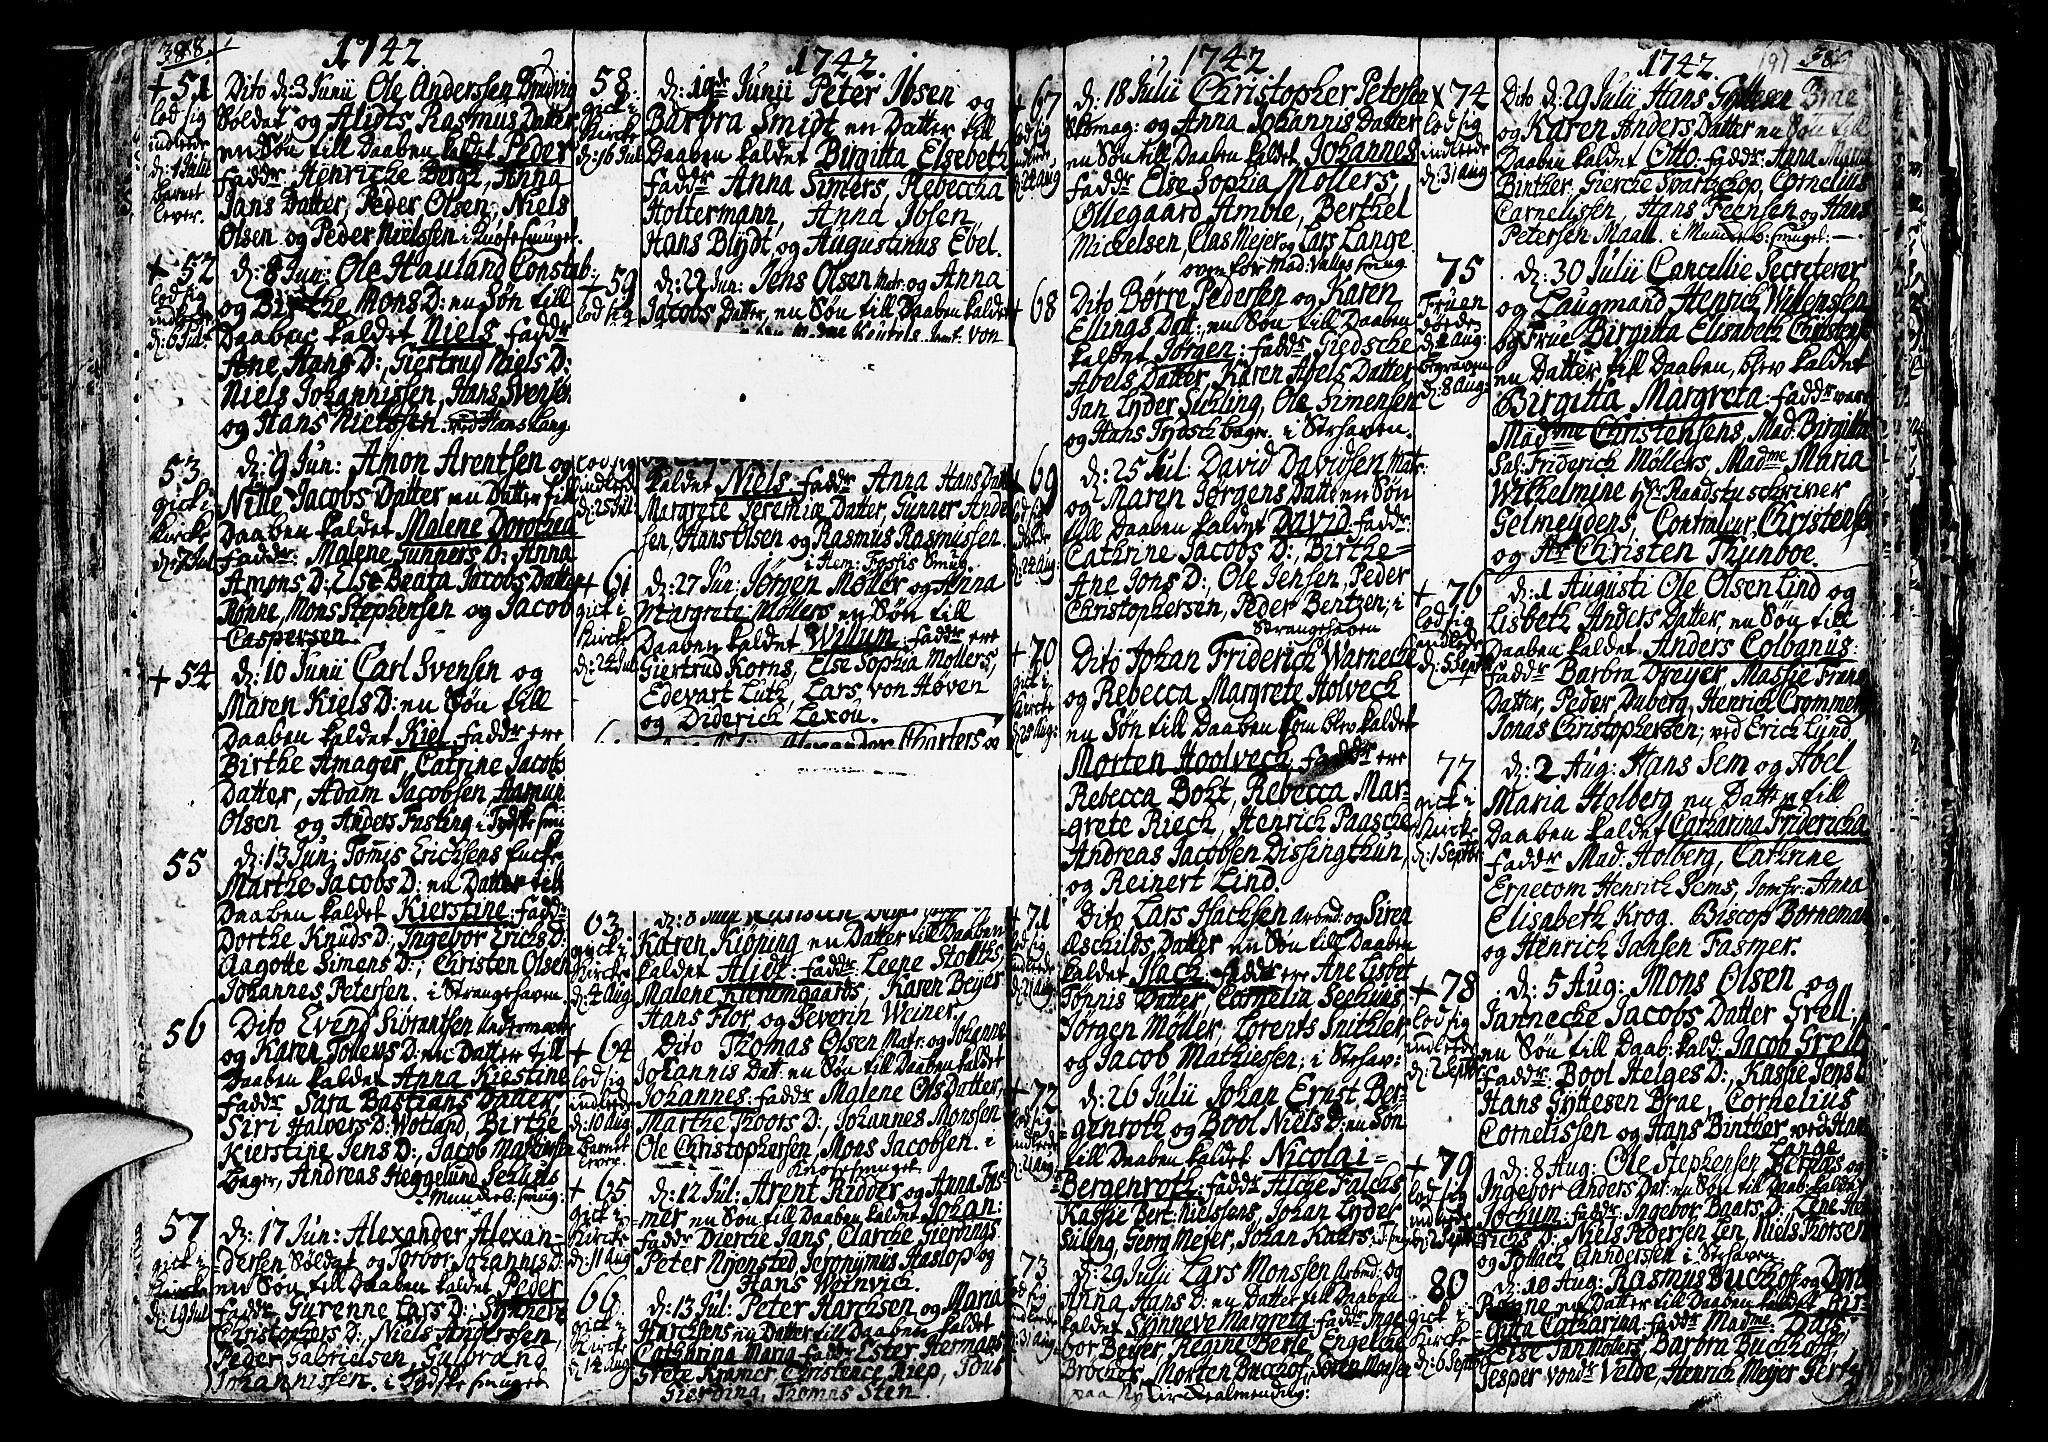 388.
1742.
+ 51
lod sig
indlede
d: 1 Julii
barnet
lever.
Dito d: 3 Junii Ole Anderssen Brudvig
Soldat og Alidts Rasmus Datter
en Søn till Daaben kaldet Peder
Faddr, Henricke Bergt, Anna
Jans Datter, Peder Olsen, Niels
Olsen og Peder Nielssen i Knøsesmuget.
+ 52
lod sig
indlede
d: 6 Jul:
d: 8 Jun: Ole Hauland Constab:
og Birthe Mons D: en Søn till
Daaben kaldet Niels Faddr
Ane Hans D:, Giertrud Niels D:
Niels Johannissen, Hans Svensen
og Hans Nielssen. ved Hans Lang
53
gick i
Kircke
d: 7 Jul
d: 9 Jun: Amon Arentsen og
Nille Jacobs Datter en Datter till
Daaben kaldet Malene Dorothea
Faddr: Malene Gunners D:, Anna
Amons D: Else Beata Jacobs Datter
Rønne, Mons Stephensen og Jacob
Caspersen.
+ 54
d: 10 Junii Carl Svensen og
Maren Kiels D: en Søn till
Daaben kaldet Kiel, Faddr ere
Birthe Amager, Catrine Jacobs
Datter, Adam Jacobsen,
Olsen og Anders Fasting i Tydskesmu
55
d: 13 Jun: Tomis Ericksens Encke
Marthe Jacobs D: en Datter till
Daaben kaldet Kierstine: Fadd:
Dorthe Knuds D:, Ingebor Erichs D:
Aagotte Simens D:, Christen Olsen
Johannes Petersen. i Strangehaven.
56
Dito Evind Siørantsen
og Karen Tollevs D: en Datter till
Daaben kaldet Anna Kiestine
Faddr Sara Bastians Datter,
Siri Halvers D: Wotland, Birthe
Kierstine Jens D:, Jacob Mathiesen
Bager, Andreas Heggelund Sehuus
Mundeb: smug:
57
gick i
Kircke
d: 19 Jul
d: 17 Jun: Alexander Alexan-
dersen Soldat og Torbor Johannis D:
en Søn till Daaben kaldet Peder
Faddr Gurenne Lars D:, Synneve
Christophers D:, Niels Anderssen,
Peder Gabrielsen, Gulbrand
Johannissen. i Tydskesmuget
1742.
58.
Gick i
Kircke
d: 16 Jul
d: 10de Junii Peter Ibsen og
Barbra Smidt en Datter till
Daaben kaldet Birgitta Elsebeth
Faddr Anna Simers, Rebeccha
Holtermann, Anna Ibsen,
Hans Blydt, og Augustinus Ebel.
+ 59
lod sig
d: 22 Jun: Jens Olsen Matr: og Anna
Jacobs Datter, en Søn till Daaben kaldet
lod sig
indlede
d: 25 Jul:
kaldet Niels Faddr Anna Hans Dat
Margrete Jeremiæ Datter, Gunner Ande
sen, Hans Olsen og Rasmus Rasmussen.
+ 61
gick i
Kircke
d: 24 Jul
d: 27 Jun: Jørgen Møller og Anna
Margrete Møllers en Søn till
Daaben kaldet Willum, Faddr ere
Giertrud Korns, Else Sophia Møllers,
Edevart Lutz, Lars von Høven
og Diderich Lexou.
63
gick i
Kircke
d: 4 Aug
Karen Kiøning en Datter till Daaben
kaldet Alidt: Faddr Leene Stolths
Malene Kierumgaards, Karen Beyer
Hans Flor og Severin Weiner.
+ 64
lod sig
indlede
d: 10 Aug
Barnet
lever.
Dito Thomas Olsen Matr: og Johanne
Johannis Dat: en Søn till Daaben kaldet
Johannes: Faddr Malene Ols Datter,
Marthe Thoors D:, Johannes Monsen
Ole Christophersen, Mons Jacobsen. i
Knøsesmuget.
+ 65
Gick i
Kircke
d: 11 Aug
d: 12 Jul: Arent Ridder og Anna Fas-
mer en Søn till Daaben kaldet Johan:
Faddr Diercke Jans, Clarche Gierdings
Peter Nyensted Jeronymus Haslop og
Hans Weinvich.
66.
gick i
Kircke
d: 14 Aug
d: 13 Jul: Peter Harchsen og Maria
Harchsens en Datter till Daaben kaldet
Catharina Maria Faddr Ester Hermans
Grete Kramer, Christence Riep, Idus
Gierding, Thomas Sten.
1742
+ 67
lod sig
indlede
d: 24 Aug
d: 18 Julii Christopher Petersen
Skomag: og Anna Johannis Datter
en Søn till Daaben kaldet Johannes
Faddr Else Sophia Møllers,
Øllegaard Amble, Berthel
Mickelsen, Clas Mejer og Lars Lange.
oven for Mad: Valigs smug
+ 68
Dito Børre Pedersen og Karen
Ellings Datt: en Søn till Daaben
kaldet Jørgen: Faddr Giedsche
Abels Datter, Karen Abels Datter
Jan Lyder Suling, Ole Simensen
og Hans Tydsch bager. i Strhaven.
+ 69
lod sig
indlede
d: 24 Aug:
d: 25 Jul: David Davidsen Matr:
og Maren Jørgens Datt en Søn
till Daaben kaldet David: Faddr:
Cathrine Jacobs D:, Birthe
Ane Jons D:, Ole Jensen, Peder
Christophersen, Peder Bentzen; i
Strangehaven
+ 70
gick i
Kircke
d: 28 Aug:
Dito Johan Friderich Warnech
og Rebecca Margrete Holveck
en Søn till Daaben som blev kaldet
Morten Hoolveck, Faddr ere
Rebecca Boht, Rebecca Mar-
grete Riech, Henrich Paasche
Andreas Jacobsen Dissingthun,
og Reinert Lind.
+ 71
lod sig
indlede
d: 21 Aug
Dito Lars Isachsen Arbmd: og Siren
Eschilds Datter en Søn till Daaben
kaldet Isach Faddr ere Ane Lisbet
Tønnis Datter, Cornelia Seehuus,
Jørgen Møller, Lorents Snithler
og Jacob Mathiessen; i Strhav:
+ 72
lod sig
indlede
d: 21 Aug
d: 26 Julii Johan Ernst Ber-
genroth og Bool Niels D: en Søn
till Daaben kaldet Nicolai
Bergenroth: Faddr Alche Falchs,
Kasfie Bert: Nielssens, Johan Lyder
Suling, Georg Mejer, Johan Kahrs:
73
lod sig
indlede
d: 31 Aug
d: 29 Julii Lars Monssen Arbmd: og
Anna Hans D: en Datter till Daaben
kaldet Synneve Margrete: Faddr Inge
bor Beyer, Regine Berle, Engelche
Brøcker, Morten Buchhof, Søren Monsen
paa Nykircke almending:
1742.
191
+ 74
lod sig
indlede
d: 31 Aug
Dito d: 29 Julii Hans Gyttesen Brae
og Karen Anders Datter en Søn till
Daaben kaldet Otto. Faddr: Anna Maria
Binther, Giercke Svartzkop, Cornelius
Cornelissen, Hans Feensen og Hans
Petersen Maall. i Mundeb: smuget:
75
Fruen
døede
d: 1 Aug:
begraven
d: 8 Aug:
d: 30 Julii Cancellie Secreterer
og Laugmand Henrich Willemssen
og Frue Birgitta Elisabeth Christens
en Datter till Daaben, blev kaldet
Birgitta Margreta: Faddr vare
Madme Christensens, Mad: Birgitta
Sal: Friderich Møllers, Madme Maria
Wilhelmine Hr Raadstuschriver
Gelmeydens, Contraleur Christens
og Hr Christen Thynboe.
+ 76
lod sig
indlede
d: 5 Septr
d: 1 Augusti Ole Olsen Lind og
Lisbeth Anders Datter, en Søn till
Daaben kaldet Anders Colbanus:
Faddr Barbra Dreyer, Massie Frans
Datter, Peder Duberg, Henrich Crommen
Jonas Christophersen; ved Erich Lund.
77
gick i
Kircke
d: 1 Septbr
d: 2 Aug: Hans Sem og Abel
Maria Holberg en Datter till
Daaben kaldet Catharina Fridericha
Faddr Mad: Holberg, Cathrine
Erpecom Henrich Sems, Jomfr: Anna
Elisabeth Krog. Biscop Borneman
og Henrich Jansen Fasmer.
+ 78
lod sig
indlede
d: 2 Septbr
d: 5 Aug: Mons Olsen og
Jannecke Jacobs Datter Grell,
en Søn till Daab: kald: Jacob Grell
Faddr: Bool Helges D:, Kasfie Jens
Hans Gyttesen Brae, Cornelius
Cornelissen og Hans Binther ved Han
Lange
+ 79
lod sig
indlede
d: 2 Septbr
d: 8 Aug: Ole Stephensen Bernes og
Ingebor Anders Dat: en Søn till Daab: kaldet
Jochum: Faddr: Ingebor Baars D:, Lene Hen
richs D:, Niels Pedersen Len, Niels Thorsen
og Pollack Anndersen i Strhaven
80
Gick i
Kircke
d: 6 Septbr
d: 10 Aug: Rasmus Buchhof og Dort
Rønne en Datter till Daaben kaldet Bir-
gitta Catharina: Faddr Madme Dais,
Else Jan Møllers, Barbra Buchhof,
Jesper vondr Velde, Henrich Meyer Gerts